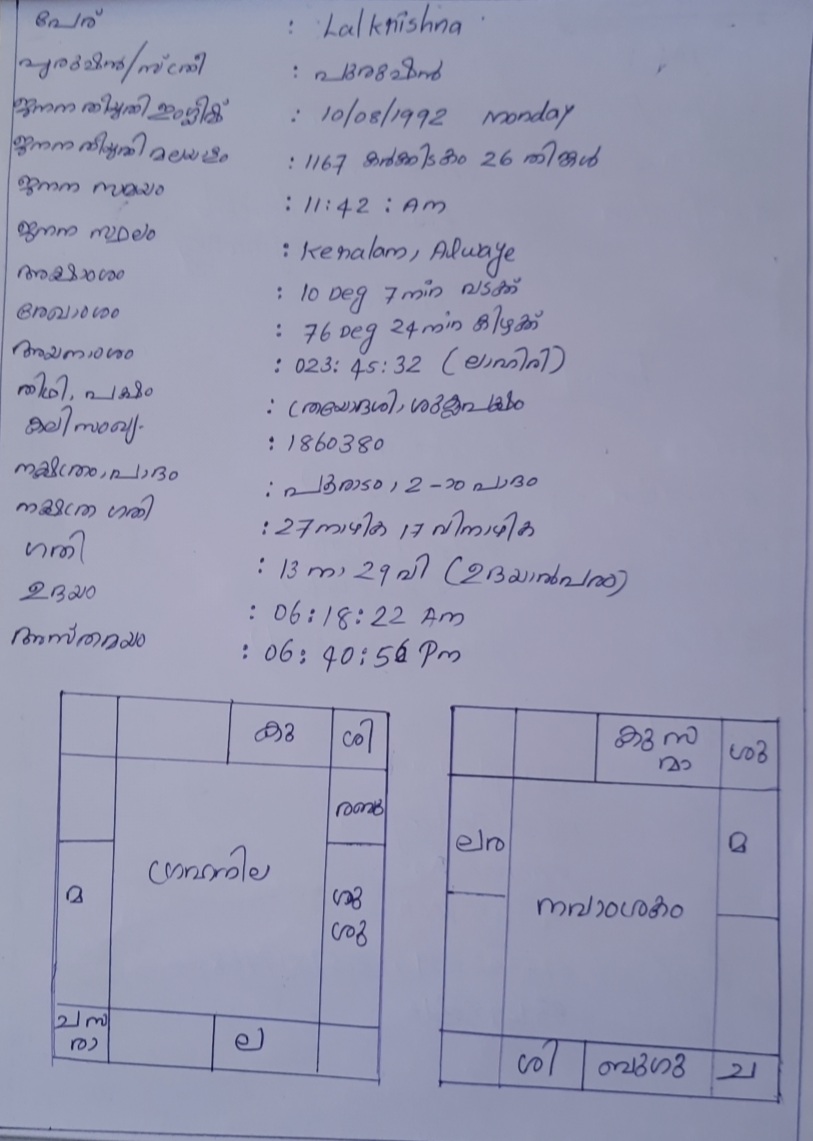 പേര് : Lalkrishna
പുരുഷൻ/സ്ത്രീ : പുരുഷൻ
ജനന തിയ്യതി ഇംഗ്ലീഷ് : 10/08/1992 Monday
ജനന തിയ്യതി മലയാളം : 1167 കർക്കിടകം 26 തിങ്കൾ
ജനന സമയം : 11:42 : Am
ജനന സ്ഥലം : Keralam, Alwaye
അക്ഷാംശം : 10 Deg 7 min വടക്ക്
രേഖാംശം : 76 Deg 24 min കിഴക്ക്
അയനാംശം : 023: 45:32 (ലാഹിരി)
തിഥി, പക്ഷം : ത്രയോദശി, ശുക്ലപക്ഷം
കലിസംഖ്യ : 1860380
നക്ഷത്രം, പാദം : പൂരാടം, 2-ാം പാദം
നക്ഷത്ര ഗതി : 27 നാഴിക 17 വിനാഴിക
ഗതി : 13 നാ, 29 വി (ഉദയാൽപരം)
ഉദയം : 06:18:22 Am
അസ്തമയം : 06: 40:56 Pm
കു ശി
കു സ
മാ ശു
രബു
ലഗ്ന മ
മ ഗ്രഹനില ഗു
ശു
നവാംശകം
ച സ
രാ ല
ശി ബുഗു ച